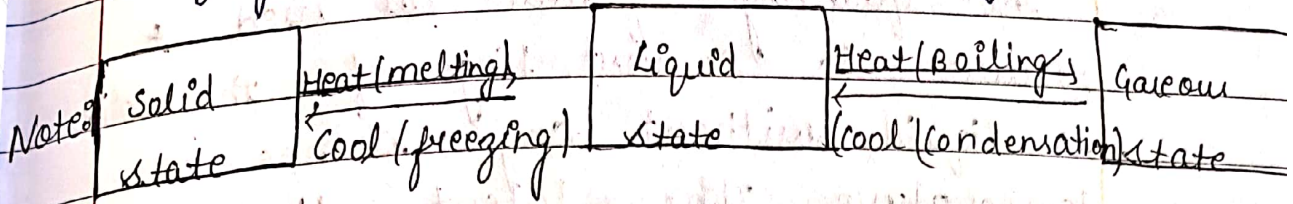 Note:
Solid
state
Heat (melting)
Cool (freezing)
Liquid
state
Heat (Boiling)
Cool (Condensation)
Gaseous
state